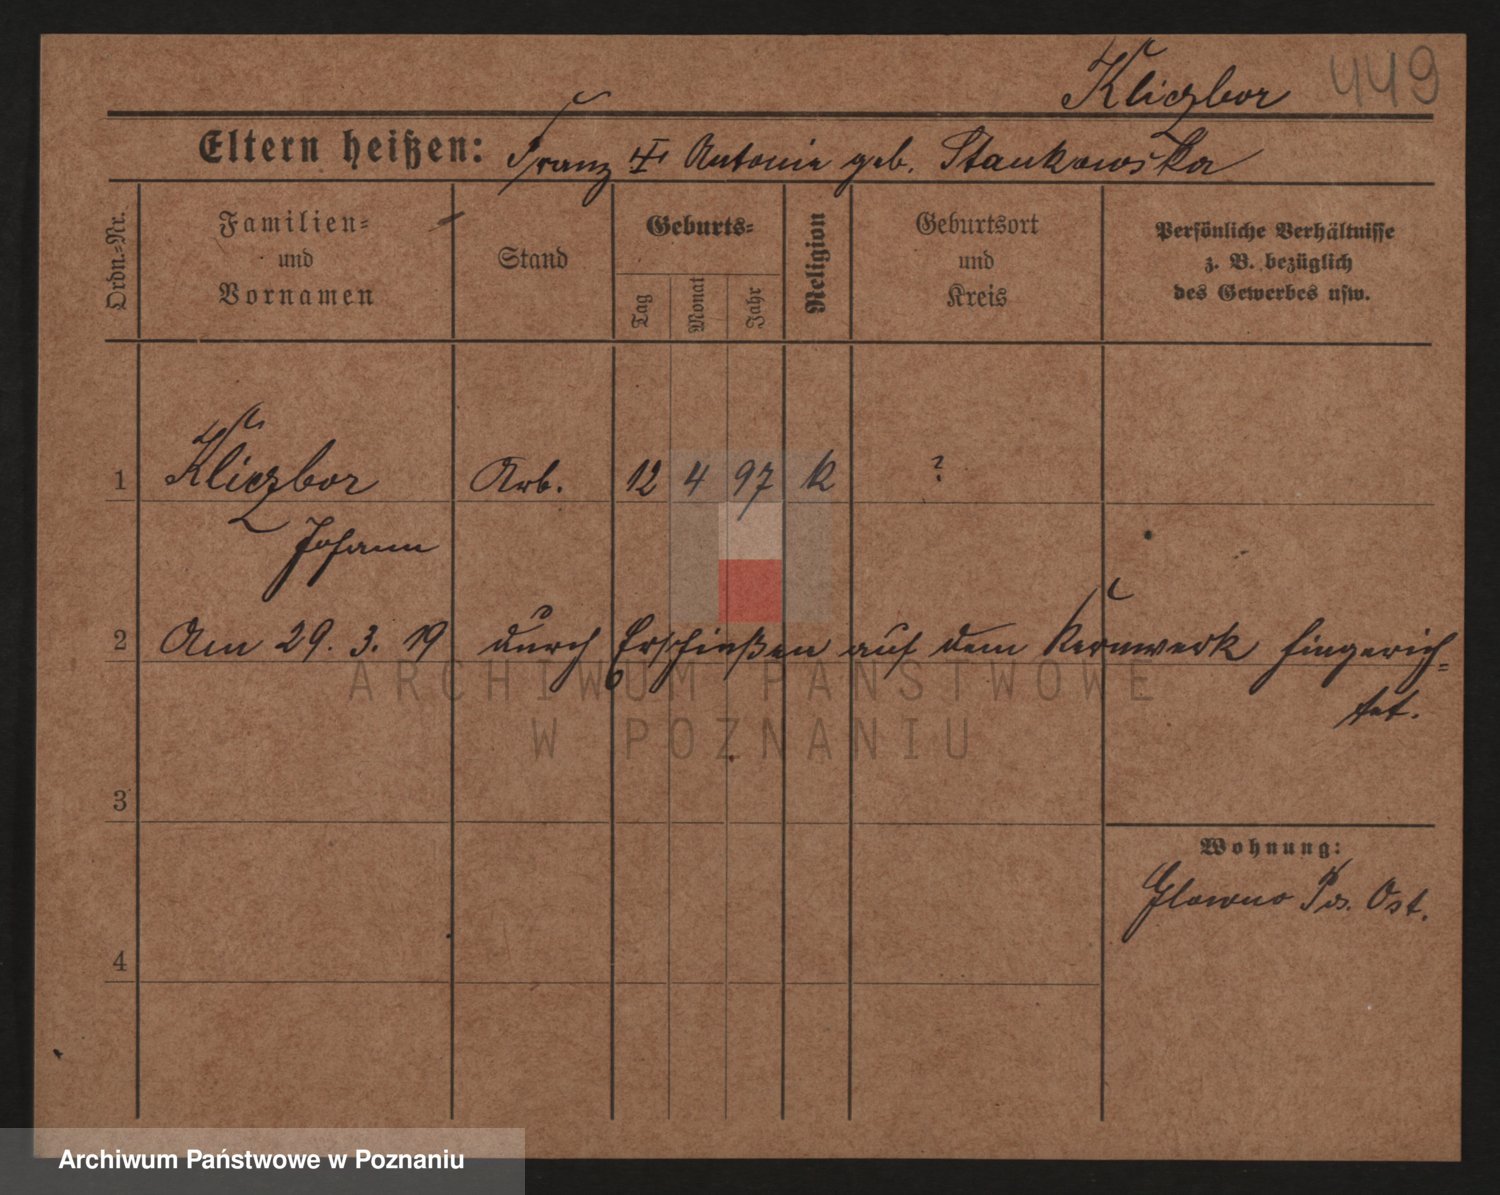 Kliczbor 449
Eltern heißen: Franz u. Antonie geb. Stankowska
Ordn.-Nr.
Familien-
und
Vornamen
Stand
Geburts-
Tag
Monat
Jahr
Religion
Geburtsort
und
Kreis
Persönliche Verhältnisse
z. B. bezüglich
des Gewerbes usw.
1 Kliczbor Arb. 12 4 97 k ?
Johann
2 Am 29. 3. 19 durch Erschießen auf dem Kernwerk hingerich-
tet.
ARCHIWUM PAŃSTWOWE
W POZNANIU
3
Wohnung:
Glowno Pos. Ost.
4
Archiwum Państwowe w Poznaniu